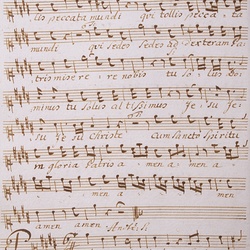 lis peccata mundi qui tollis pecca ta
mundi qui sedes sedes ad dexteram Pa
tris mise re re nobis tu so lus Do
minus tu solus al tissimus Je su Je
su Je su Christe Cum Sancto Spiritu
in gloria Patris a men a men a
men a men
amen amen